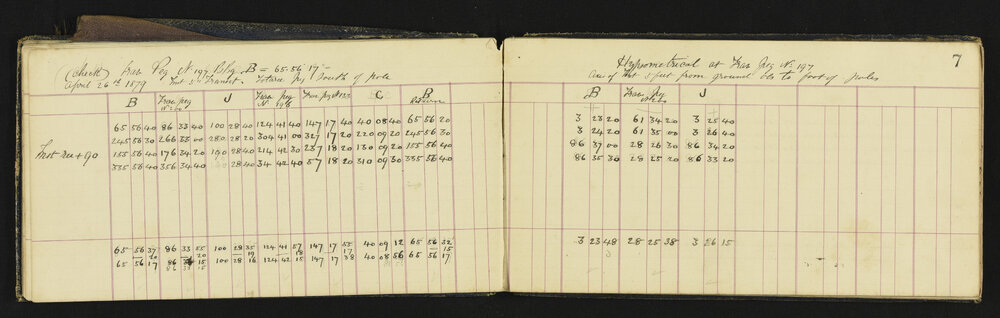 (check) Trav Peg No 197 Bdy. B = 65·56·17"
April 26th 1879 Inst 5in Transit. Peg South of Pole
B Trav peg J Trav peg No 196 Trav peg C B Return
65 56 40 86 33 40 100 28 40 124 41 40 147 17 40 40 08 40 65 56 20
245 56 30 266 33 00 280 28 20 304 41 00 327 17 20 220 09 20 245 56 30
Inst rev + 90 155 56 40 176 34 20 190 28 40 214 42 30 237 18 20 130 09 20 155 56 40
335 56 40 356 34 40 28 40 34 42 40 57 18 20 310 09 30 335 56 40
65 56 37 86 33 55 100 28 35 124 41 57 147 17 55 40 09 12 65 56 32
20 20 19 18 17 15
65 56 17 86 15 100 28 16 124 42 15 147 17 38 40 08 56 65 56 17
86 33 15
7
Hypsometrical at Trav Peg No. 197
Axis of Inst 5 feet from ground obs to foot of poles
B Trav peg J
3 23 20 61 34 20 3 25 40
3 24 20 61 35 00 3 26 40
86 37 00 28 26 30 86 34 20
86 35 30 28 25 20 86 33 20
3 23 48 28 25 38 3 26 15
3